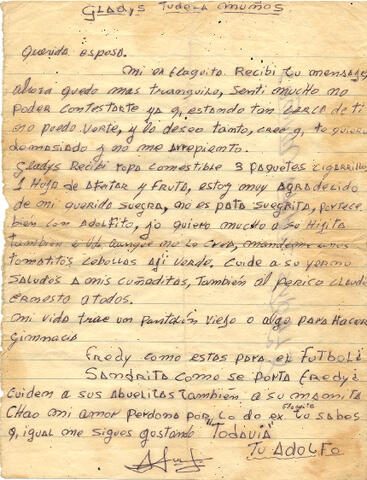 GLADYS TUDELA MUÑOS
Querida esposa.
Mi Flaquita Recibi tu mensaje
ahora quedo mas tranquilo, Senti mucho no
poder contestarte ya q, estando tan CERCA de ti
no puedo verte, y lo deseo tanto, cree q, te quiero
demasiado y no me arrepiento.
Gladys Recibi ropa comestible 3 paquetes cigarrillo
1 Hoja de Afeitar y FRUTA, estoy muy agradecido
de mi querida suegra, no es pata suegrita, portece
bien con Adolfito, yo quiero mucho a su Hijita
también a Ud aunque no lo crea, mandeme unos
tomatitos cebollas Aji verde. Cuide a su yerno
Saludos a mis cuñaditas, también al perico Claudio
Ernesto a todos.
Mi vida trae un pantalón viejo o algo para Hacer
Gimnacia
Fredy como estas para el FUTBOL?
SANDRITA como se porta Fredy?
Cuiden a sus abuelitas también a su mamita
CHAO mi amor perdona por lo do ex. tu sabes
q, igual me sigues gustando "TODAVIA"
TU ADOLFO